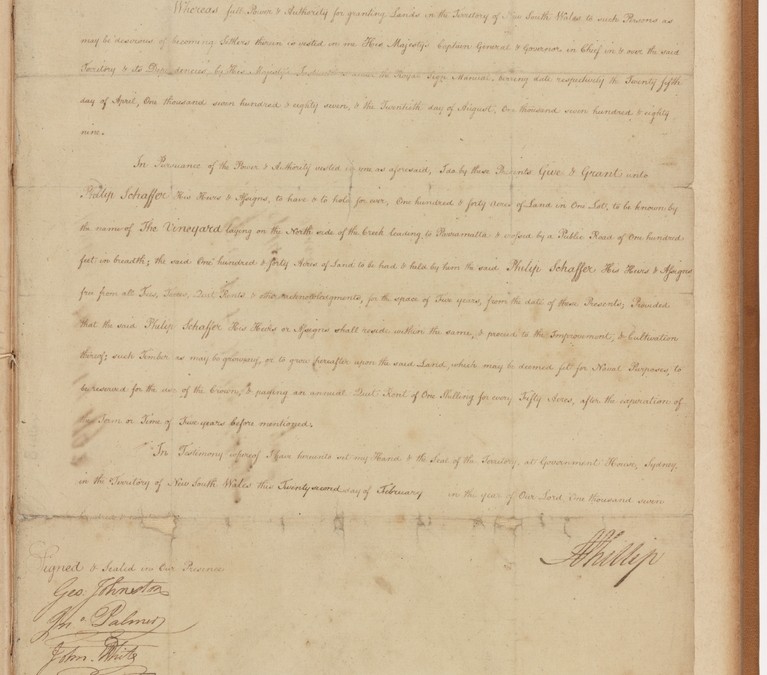 Whereas full Power & Authority for granting Lands in the Territory of New South Wales to such Persons as
may be desirous of becoming Settlers therein is vested in me His Majesty's Captain General & Governor in Chief in & over the said
Territory & its Dependencies, by His Majesty's Instructions under the Royal Sign Manual, bearing date respectively the Twenty fifth
day of April, One thousand seven hundred & eighty seven, & the Twentieth day of August, One thousand seven hundred & eighty
nine.
In Pursuance of the Power & Authority vested in me as aforesaid, I do by these Presents Give & Grant unto
Philip Schaffer His Heirs & Assigns, to have & to hold for ever, One hundred & forty acres of Land in One Lot, to be known by
the name of The Vineyard laying on the North side of the Creek leading to Parramatta & crossed by a Public Road of One hundred
feet in breadth; the said One hundred & forty Acres of Land to be had & held by him the said Philip Schaffer His Heirs & Assigns
free from all Fees, Taxes, Quit Rents & other acknowledgments, for the space of Five years, from the date of these Presents; Provided
that the said Philip Schaffer His Heirs or Assigns shall reside within the same, & proceed to the Improvement, & Cultivation
thereof; such Timber as may be growing, or to grow hereafter upon the said Land, which may be deemed fit for Naval Purposes, to
be reserved for the use of the Crown, & paying an annual Quit Rent of One Shilling for every Fifty Acres, after the expiration of
the Term or Time of Five years before mentioned.
In Testimony whereof I have hereunto set my Hand & the Seal of the Territory, at Government House, Sydney,
in the Territory of New South Wales this Twenty second day of February in the year of Our Lord, One thousand seven
Signed & Sealed in Our Presence
A Phillip
Geo. Johnston
Jno. Palmer
John White